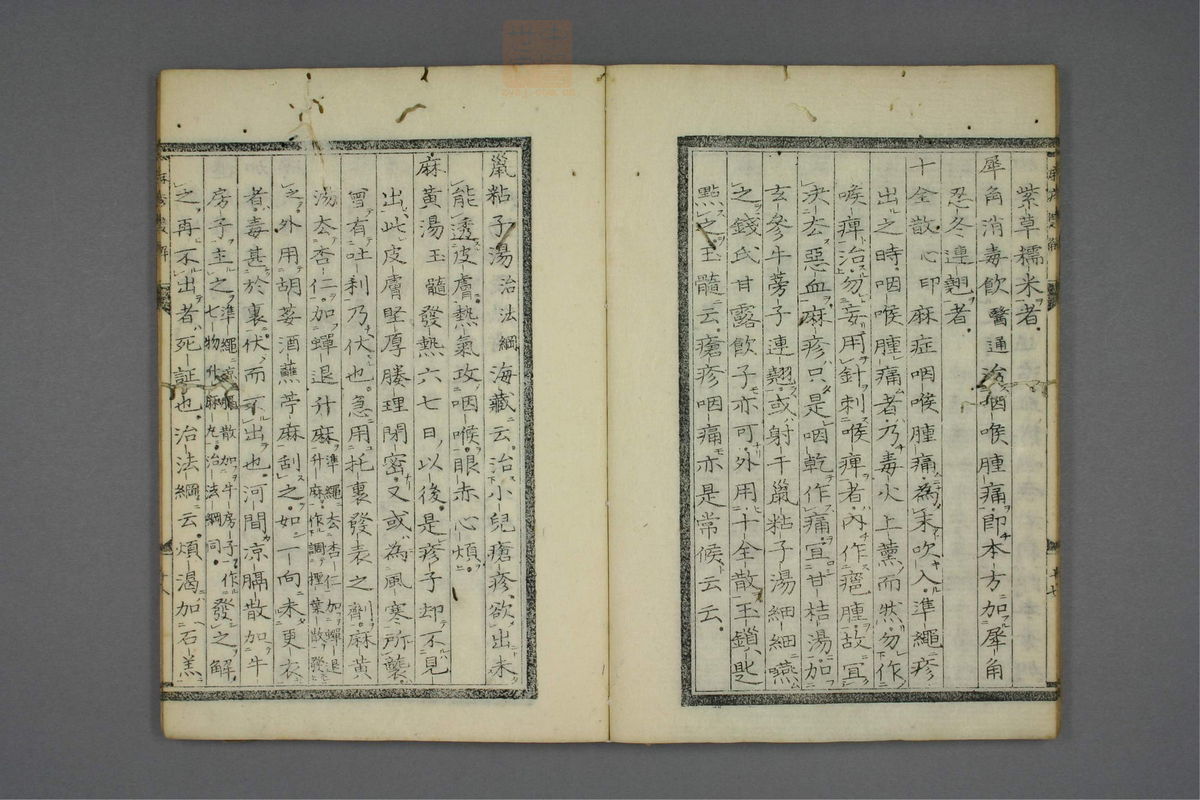 紫草糯米者
犀角消毒飲 醫通治咽喉腫痛即本方加犀角
忍冬連翹者
十全散 心印麻症咽喉腫痛為末吹入準繩疹
出之時咽喉腫痛者乃毒火上薰而然勿作
喉痺治勿妄用針刺喉痺者內作瘡腫故宜
決去惡血麻疹只是咽乾作痛宜甘桔湯加
玄參牛蒡子連翹或射干鼠粘子湯細細嚥
之錢氏甘露飲子亦可外用十全散玉鎖匙
點之玉髓云瘡疹咽痛亦是常候云云
鼠粘子湯 治法綱海藏云治小兒瘡疹欲出未
能透皮膚熱氣攻咽喉眼赤心煩
麻黃湯 玉髓發熱六七日以後是疹子却不見
出此皮膚堅厚腠理閉密又或為風寒所襲
曾有吐利乃伏也急用托裏發表之劑麻黃
湯去杏仁加蟬退升麻 準繩去杏仁加蟬退升麻作調
之外用胡荽酒蘸苧麻刮之如一向未更衣
者毒甚於裏伏而不出也河間涼膈散加牛
房子主之 準繩涼膈散加牛房子作七物升麻丸治法綱同 發之解
之再不出者死証也治法綱云煩渴加石羔